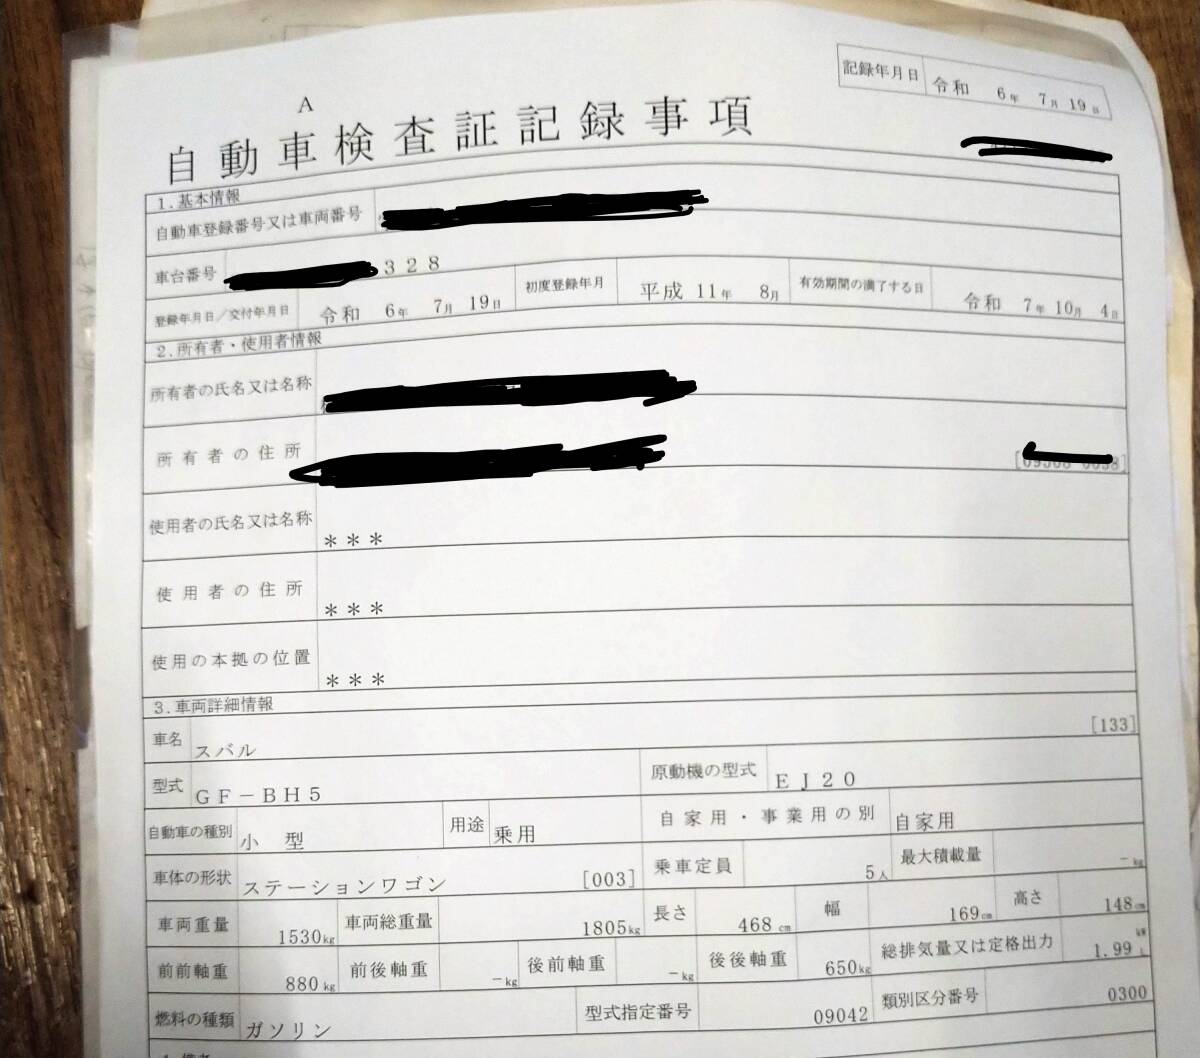 記録年月日 令和 6年 7月 19日
A
自動車検査証記録事項
1.基本情報
自動車登録番号又は車両番号
車台番号 328
登録年月日/交付年月日 令和 6年 7月 19日 初度登録年月 平成 11年 8月 有効期間の満了する日 令和 7年 10月 4日
2.所有者・使用者情報
所有者の氏名又は名称
所有者の住所
使用者の氏名又は名称 ***
使用者の住所 ***
使用の本拠の位置 ***
3.車両詳細情報
車名 スバル [133]
型式 GF-BH5 原動機の型式 EJ20
自動車の種別 小型 用途 乗用 自家用・事業用の別 自家用
車体の形状 ステーションワゴン [003] 乗車定員 5人 最大積載量 -kg
車両重量 1530kg 車両総重量 1805kg 長さ 468cm 幅 169cm 高さ 148cm
前前軸重 880kg 前後軸重 -kg 後前軸重 -kg 後後軸重 650kg 総排気量又は定格出力 1.99 kW L
燃料の種類 ガソリン 型式指定番号 09042 類別区分番号 0300